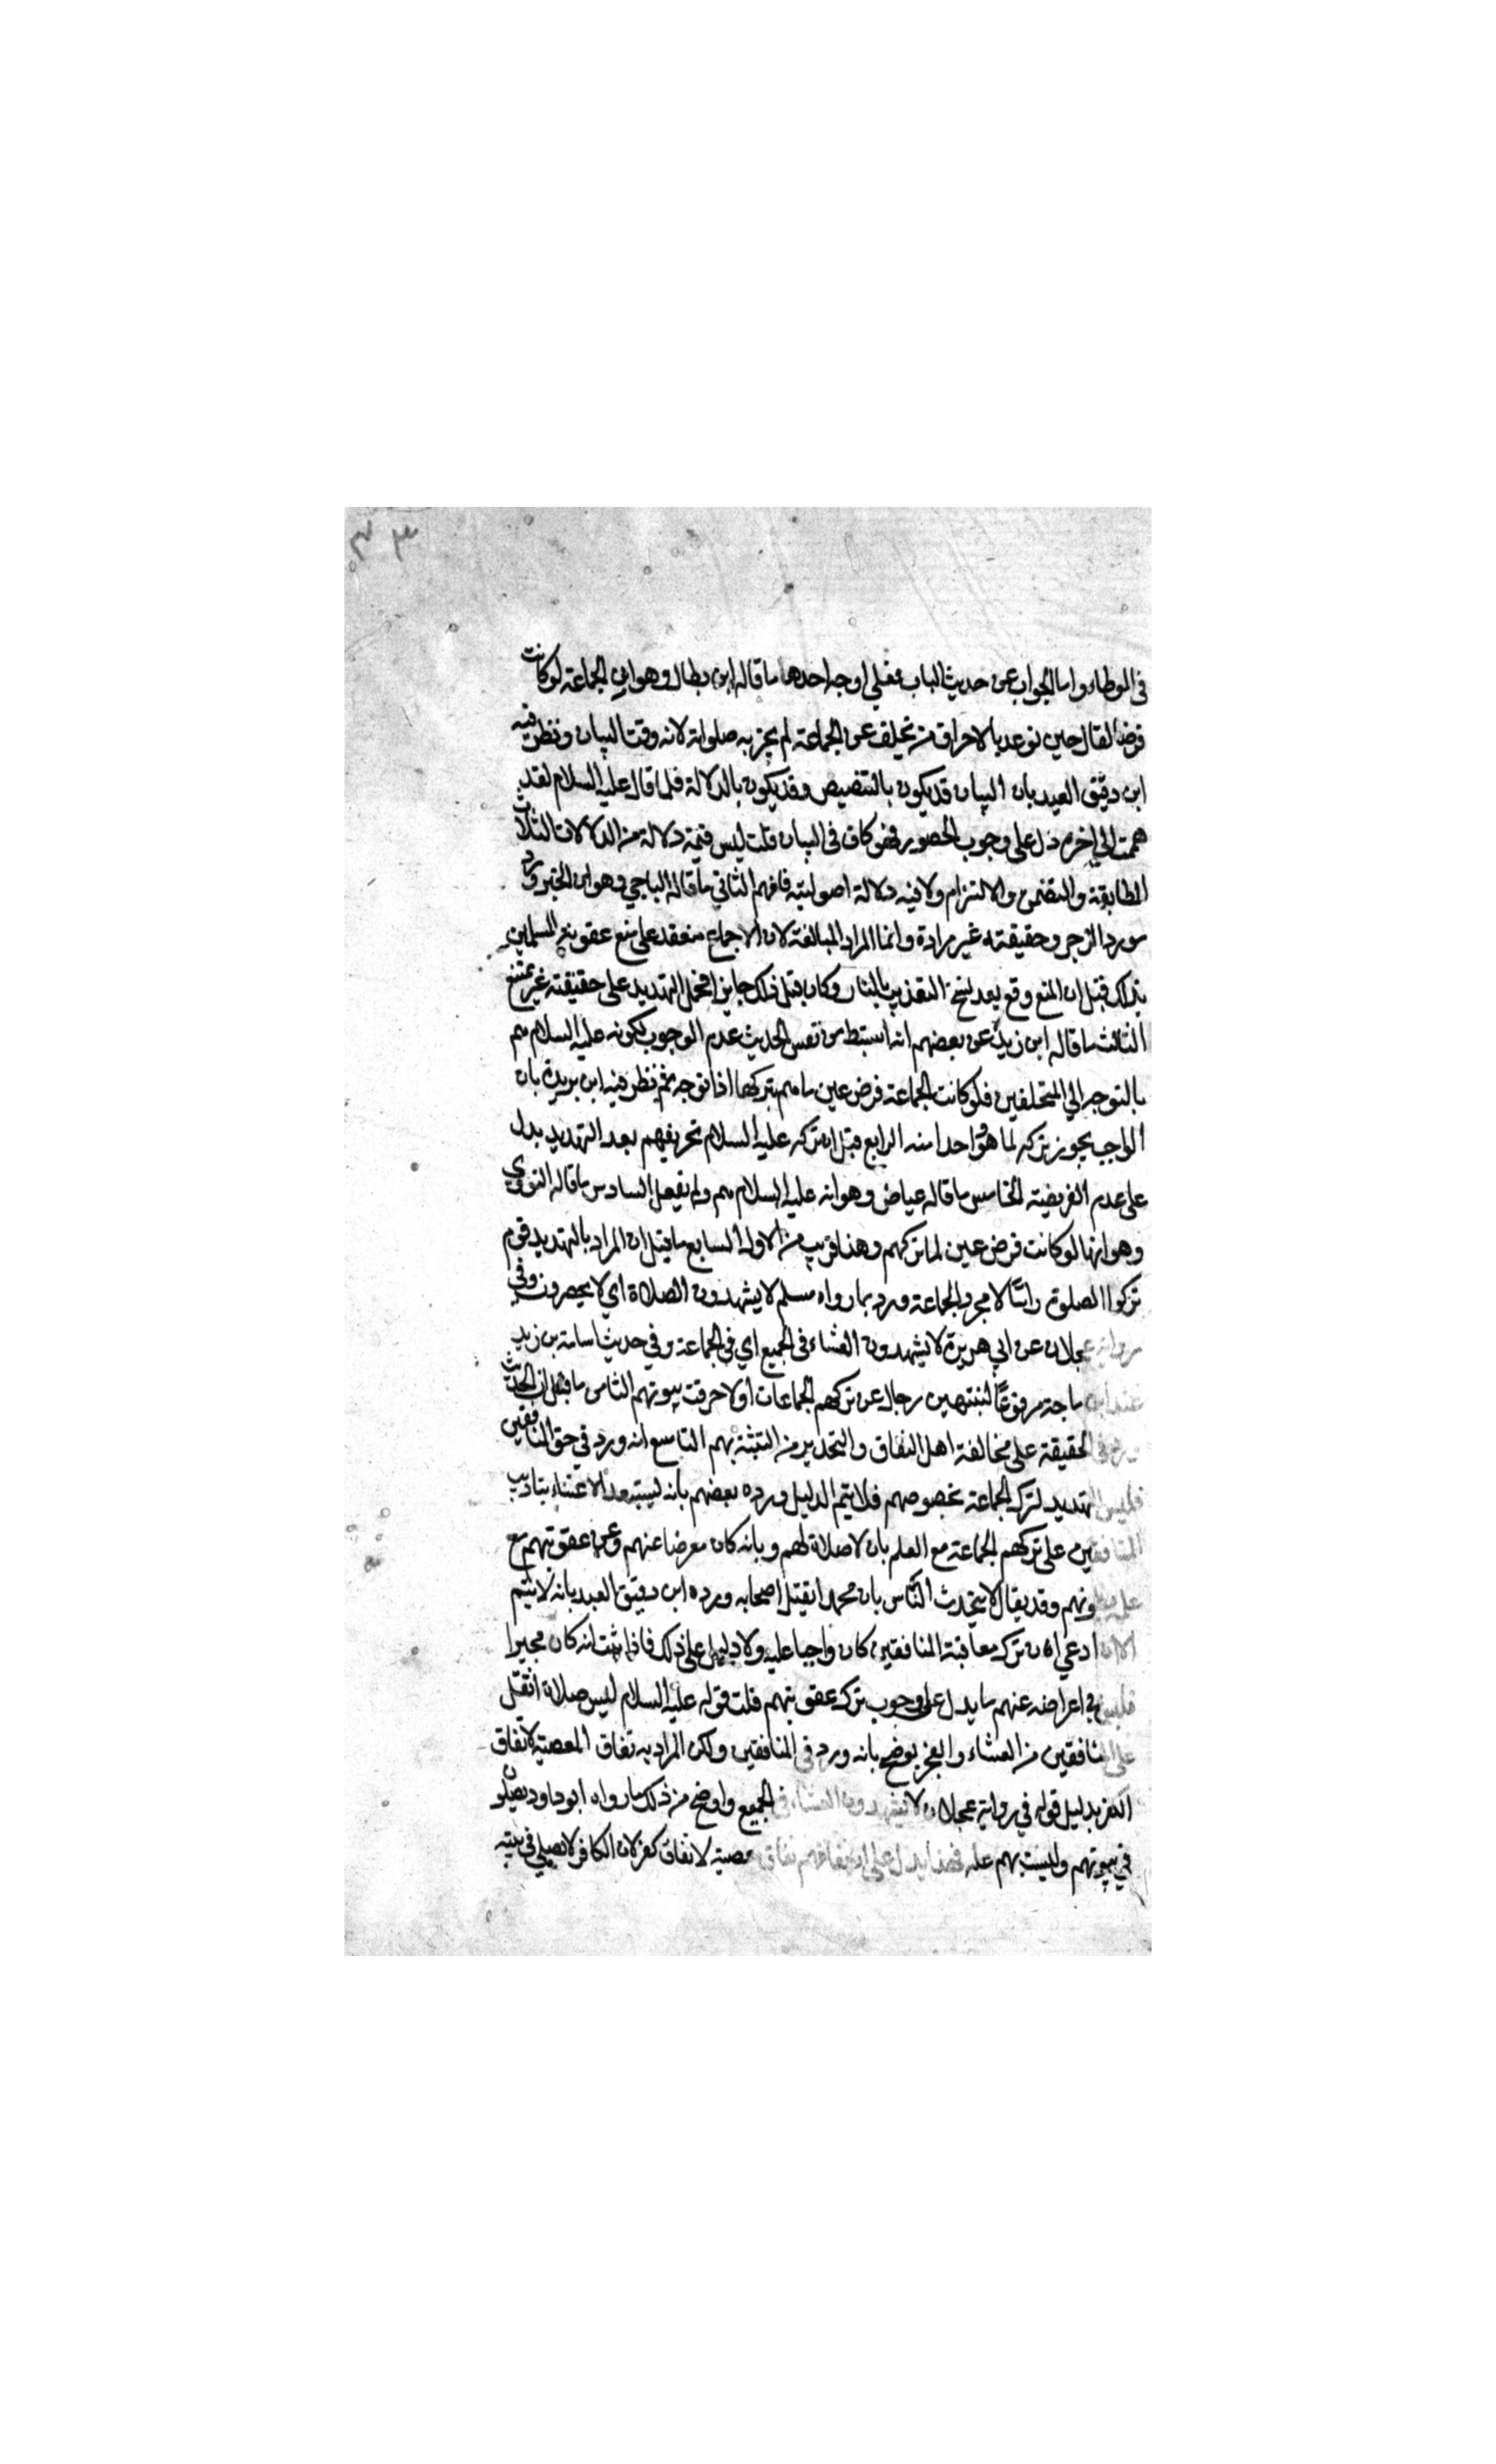 ٣ ٣
في الموطاء واما الجواب عن حديث الباب فعلي اوجه احدها ما قاله ابن بطال وهو ان الجماعة لو كانت
فرضا لقال حين توعد بالاحراق من تخلف عن الجماعة لم يجزيه صلواته لانه وقت البيان ونظر فيه
ابن دقيق العيد بان البيان قد يكون بالتنصيص وقد يكون بالدلالة فلما قال عليه السلام لقد
هممت الي اخره دل علي وجوب الحضور فهو كاف في البيان قلت ليس فيه دلالة من الدلالات الثلاث
المطابقة والتضمن والالتزام ولا فيه دلالة اصولية فافهم الثاني ما قاله الباجي وهو ان الخبر ورد
مورد الزجر وحقيقته غير مرادة وانما المراد المبالغة لان الاجماع منعقد علي منع عقوبة المسلمين
بذلك قيل ان المنع وقع بعد نسخ التعذيب بالنار وكان قبل ذلك جايزا فحمل التهديد علي حقيقته غير ممتنع
الثالث ما قاله ابن بزيزة عن بعضهم انه استبط من نفس الحديث عدم الوجوب لكونه عليه السلام هم
بالتوجه الي المتخلفين فلو كانت الجماعة فرض عين ما هم بتركها اذا توجه ثم نظر فيه ابن بريدة بان
الواجب يجوز تركه لما هو احدا منه الرابع قيل ان تركه عليه السلام تحريقهم بعد التهديد يدل
علي عدم الفرضية الخامس ما قاله عياض وهو انه عليه السلام هم ولم يفعل السادس ما قاله النووي
وهو انها لو كانت فرض عين لما تركهم وهذا قريب من الاول السابع ما قيل ان المراد بالتهديد قوم
تركوا الصلوة راسًا لا مجرد الجماعة ورد بما رواه مسلم لا يشهدون الصلاة اي لا يحضرون وفي
رواية عجلان عن ابي هريرة لا يشهدون العشاء في الجميع اي في الجماعة وفي حديث اسامة بن زيد
عند ابن ماجة مرفوعًا لينتهين رجال عن تركهم الجماعات او لاحرقن بيوتهم الثامن ما قيل ان الحديث
ورد في الحقيقة علي مخالفة اهل النفاق والتحذير من التشبه بهم التاسع انه ورد في حق المنافقين
فليس التهديد لترك الجماعة بخصوصهم فلا يتم الدليل ورده بعضهم بانه يستبعد الاعتناء بتاديب
المنافقين علي تركهم الجماعة مع العلم بان لا صلاة لهم وبانه كان معرضا عنهم وعن عقوبتهم مع
علمه بطويتهم وقد يقال لا يتحدث الناس بان محمدا يقتل اصحابه ورده ابن دقيق العيد بانه لا يتم
الا ان ادعي ان ترك معاقبة المنافقين كان واجبا عليه ولا دليل علي ذلك فاذا ثبت انه كان مخيرا
فليس في اعراضه عنهم ما يدل علي وجوب ترك عقوبتهم قلت قوله عليه السلام ليس صلاة اثقل
علي المنافقين من العشاء والفجر يوضح بانه ورد في المنافقين ولكن المراد به نفاق المعصية لا نفاق
الكفر بدليل قوله في رواية عجلان لا يشهدون العشاء في الجميع واوضح من ذلك ما رواه ابو داود يصلون
في بيوتهم وليست بهم علة فهذا يدل علي ان نفاقهم نفاق معصية لا نفاق كفر لان الكافر لا يصلي في بيته